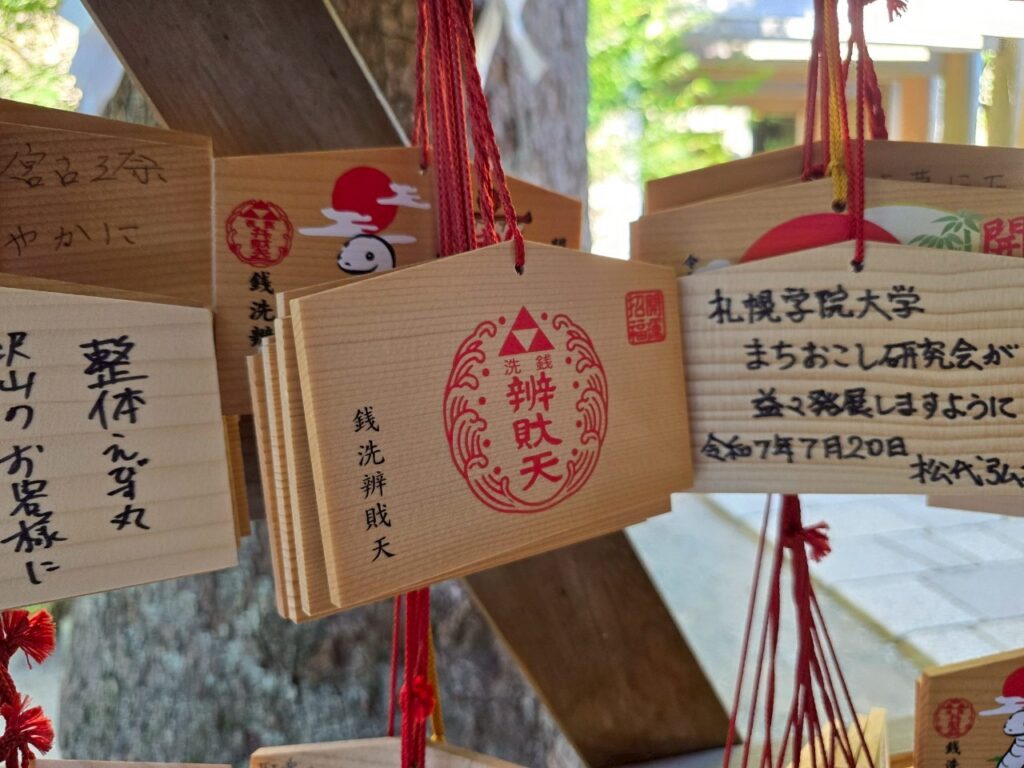 宮古
やかに
銭洗辨
整体
山のお客様に
開運
招福
銭洗
辨財天
銭洗辨財天
開
札幌学院大学
まちおこし研究会が
益々発展しますように
令和7年7月20日
松代
銭